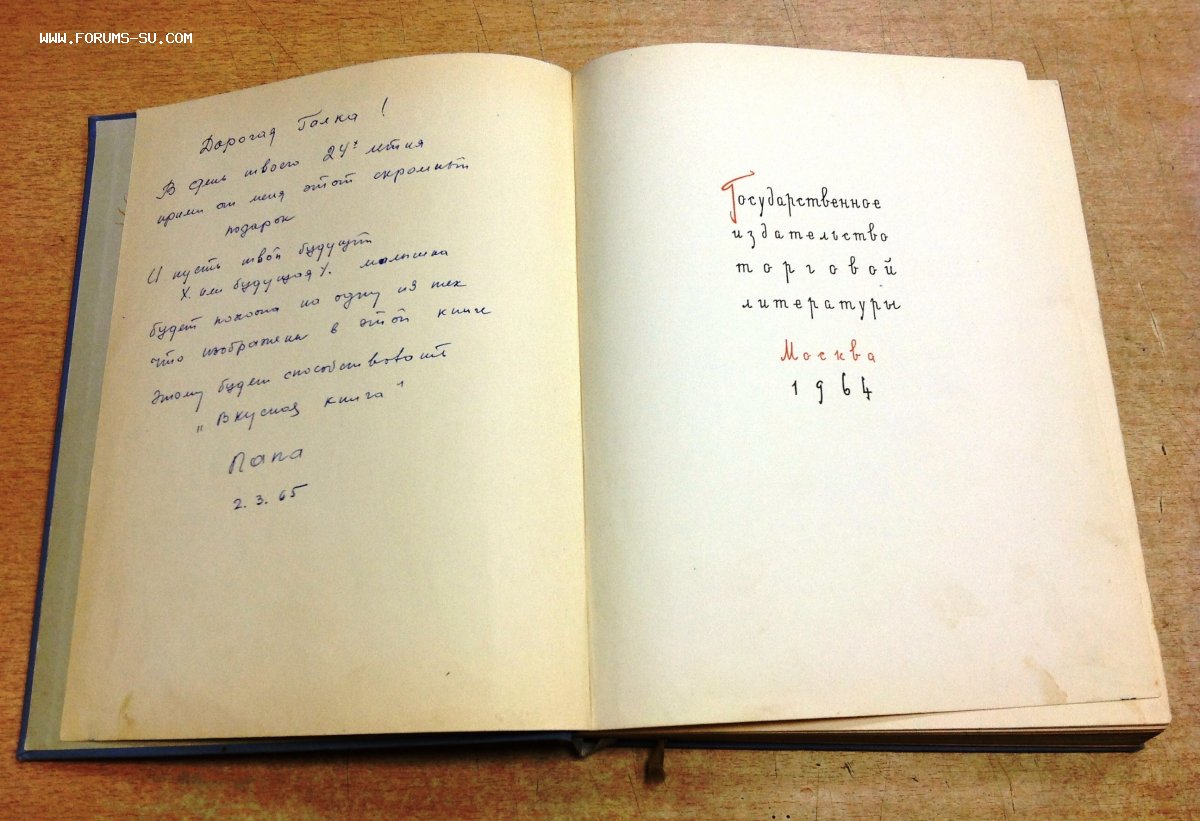 WWW.FORUMS-SU.COM
Дорогая Галка!
В день твоего 24х летия
прими от меня этот скромный
подарок
И пусть твой будущий
X. или будущая У. малышка
будет похожа на одну из тех
что изображены в этой книге
Этому будет способствовать
„Вкусная книга"
Папа
2.3.65
Государственное
издательство
торговой
литературы
Москва
1964